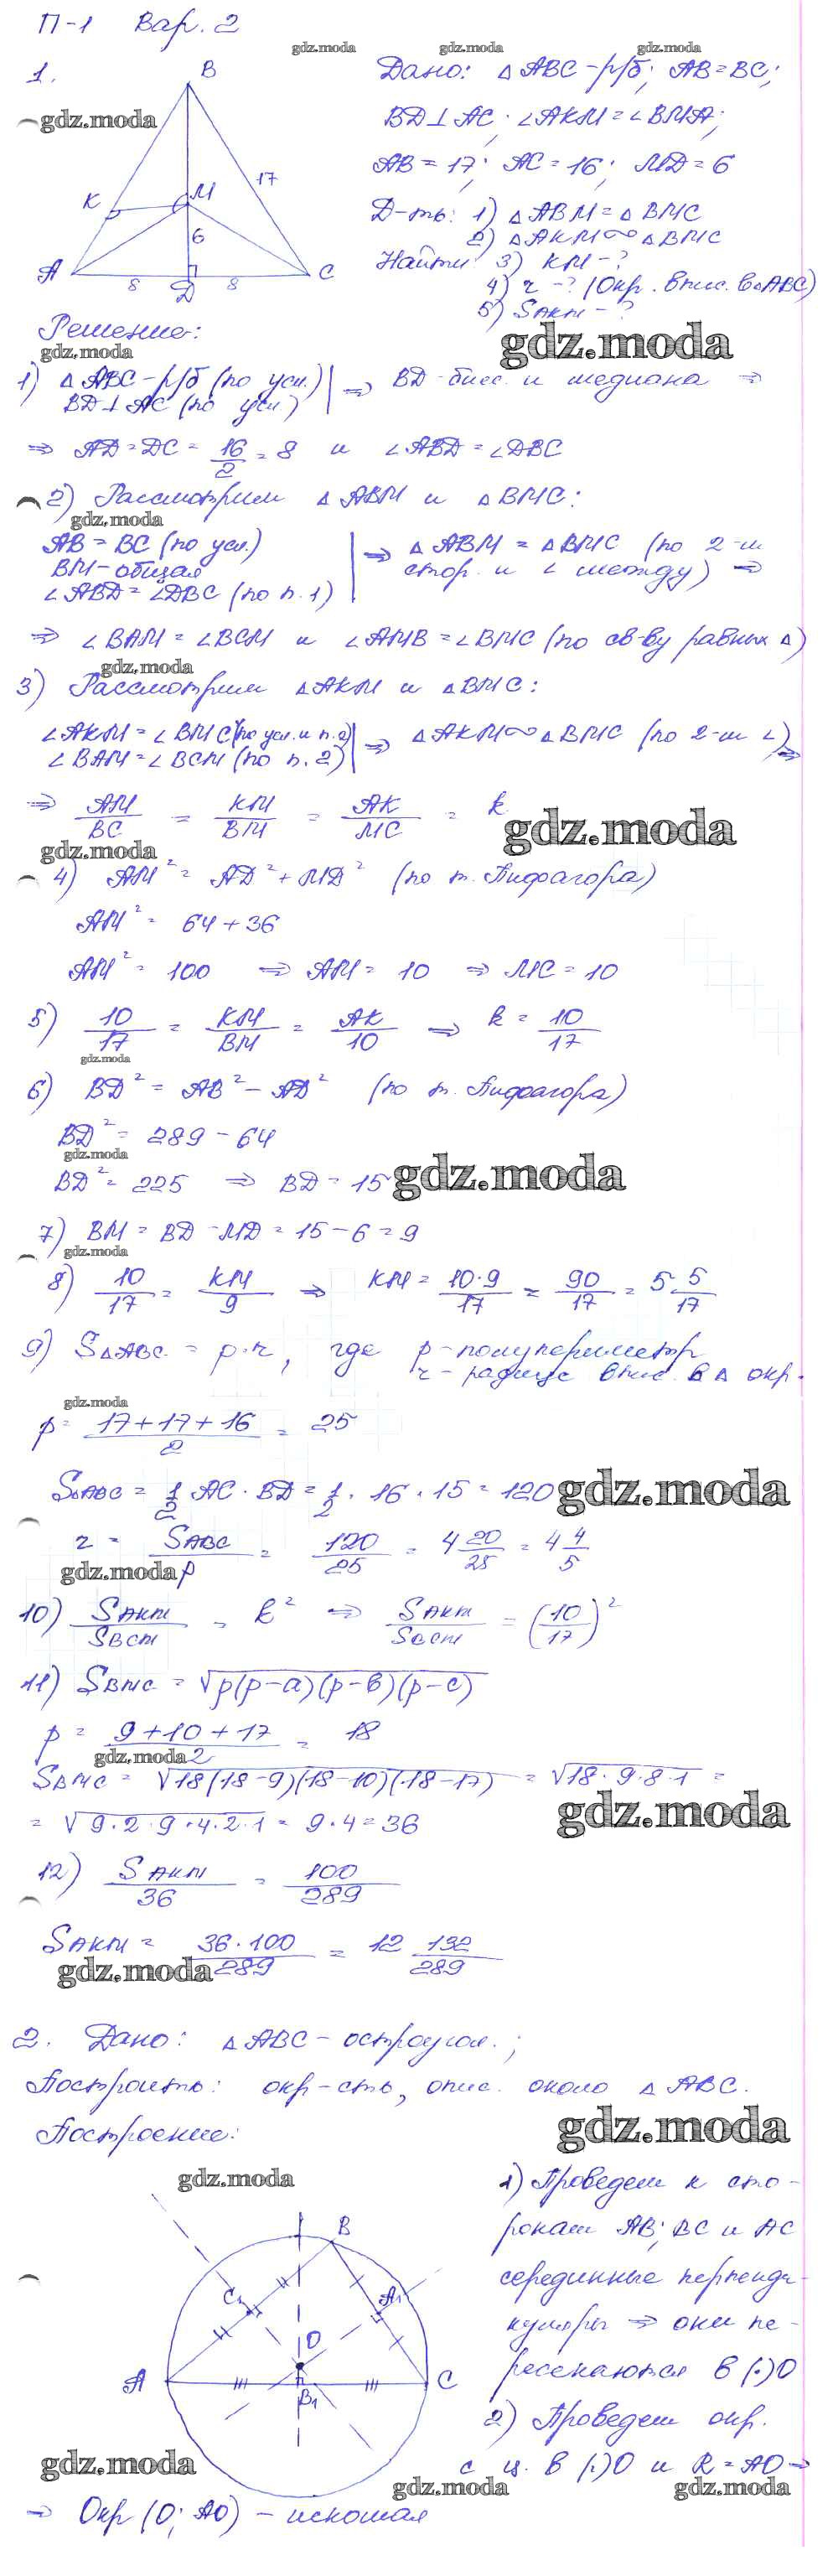 П-1 Вар. 2
gdz.moda gdz.moda gdz.moda
1.
B
K
M
17
6
A
8
D
8
C
gdz.moda
Дано: △ABC - р/б; AB = BC;
BD ⊥ AC; ∠AKM = ∠BMA;
AB = 17; AC = 16; MD = 6
Д-ть: 1) △ABM = △BMC
2) △AKM ∾ △BMC
Найти 3) KM - ?
4) r - ? (окр. впис. в △ABC)
5) SAKM - ?
Решение:
gdz.moda
gdz.moda
1) △ABC - р/б (по усл.) | ⇒ BD - бисс. и медиана ⇒
BD ⊥ AC (по усл.)
⇒ AD = DC = 16/2 = 8 и ∠ABD = ∠DBC
2) Рассмотрим △ABM и △BMC:
gdz.moda
AB = BC (по усл.) | ⇒ △ABM = △BMC (по 2-м
BM - общая | стор. и ∠ между) ⇒
∠ABD = ∠DBC (по п. 1)
⇒ ∠BAM = ∠BCM и ∠AMB = ∠BMC (по св-ву равных △)
gdz.moda
3) Рассмотрим △AKM и △BMC:
∠AKM = ∠BMC (по усл. и п. 2) | ⇒ △AKM ∾ △BMC (по 2-м ∠) ⇒
∠BAM = ∠BCM (по п. 2)
⇒ AM/BC = KM/BM = AK/MC = k
gdz.moda
gdz.moda
4) AM² = AD² + MD² (по т. Пифагора)
AM² = 64 + 36
AM² = 100 ⇒ AM = 10 ⇒ MC = 10
5) 10/17 = KM/BM = AK/10 ⇒ k = 10/17
gdz.moda
6) BD² = AB² - AD² (по т. Пифагора)
BD² = 289 - 64
gdz.moda
BD² = 225 ⇒ BD = 15
gdz.moda
7) BM = BD - MD = 15 - 6 = 9
gdz.moda
8) 10/17 = KM/9 ⇒ KM = 10·9/17 = 90/17 = 5 5/17
9) S△ABC = p·r, где p - полупериметр
r - радиус впис. в △ окр.
gdz.moda
p = 17+17+16/2 = 25
S△ABC = 1/2 · AC · BD = 1/2 · 16 · 15 = 120
gdz.moda
r = SABC/p = 120/25 = 4 20/25 = 4 4/5
gdz.moda
10) SAKM/SBCM = k² ⇒ SAKM/SBCM = (10/17)²
11) SBMC = √p(p-a)(p-b)(p-c)
p = 9+10+17/2 = 18
gdz.moda
SBMC = √18(18-9)(18-10)(18-17) = √18·9·8·1 =
gdz.moda
= √9·2·9·4·2·1 = 9·4 = 36
12) SAKM/36 = 100/289
SAKM = 36·100/289 = 12 132/289
gdz.moda
2. Дано: △ABC - остроугол.;
Построить: окр-сть, опис. около △ABC.
gdz.moda
Построение:
gdz.moda
B
C₁
A₁
O
A
B₁
C
1) Проведем к сто-
ронам AB; BC и AC
серединные перпенди-
куляры ⇒ они пе-
ресекаются в (·)O
2) Проведем окр.
с ц. в (·)O и R = AO ⇒
gdz.moda
gdz.moda gdz.moda
⇒ Окр (O; AO) - искомая